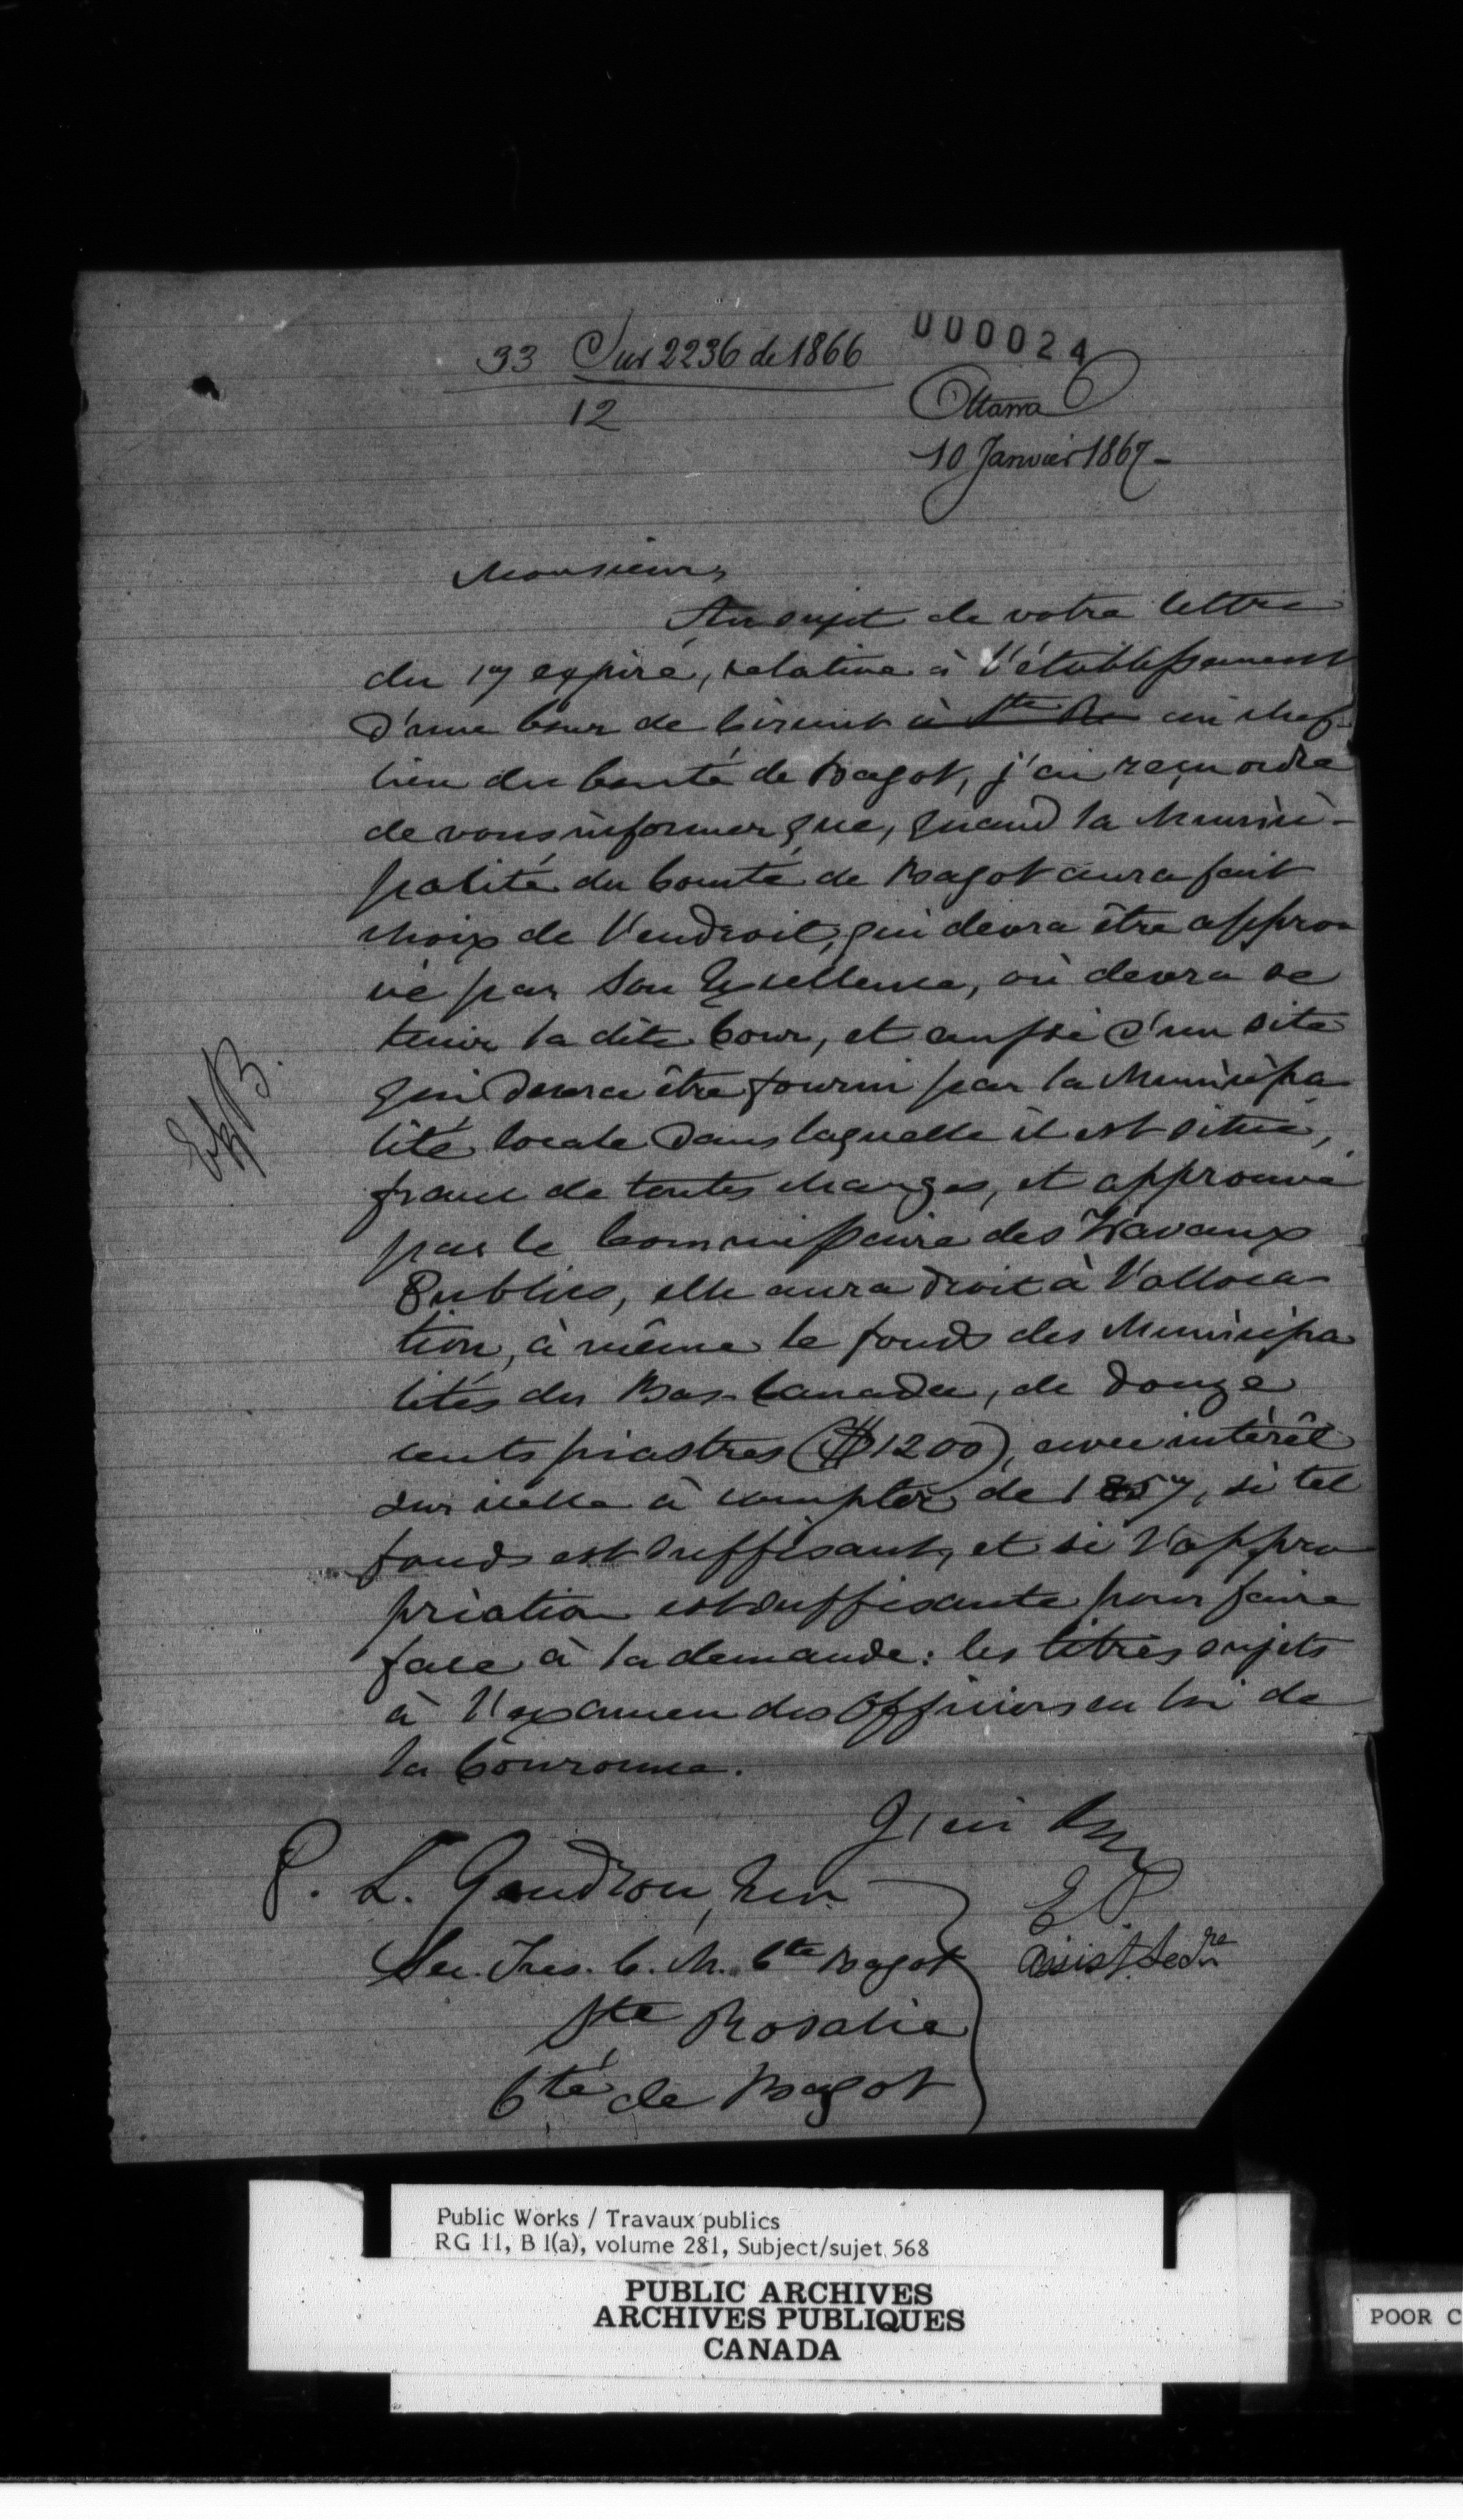 000024
33 Sur 2236 de 1866
12
Ottawa
10 Janvier 1867-
Monsieur,
Au sujet de votre lettre
du 17 expiré, relative à l'établissement
d'une Cour de Circuit à Ste Ro au chef-
lieu du Comté de Bagot, j'ai reçu ordre
de vous informer que, quand la Munici-
palité du Comté de Bagot aura fait
choix de l'endroit, qui devra être approu
vé par Son Excellence, où devra se
tenir la dite Cour, et aussi d'un site
qui devra être fourni par la Municipa
lité locale dans laquelle il est situé,
franc de toutes charges, et approuvé
par le Commissaire des Travaux
Publics, elle aura droit à l'alloca-
tion, à même le fonds des Municipa
lités du Bas-Canada, de douze
cents piastres ($1200), avec intérêt
sur icelle à compter de 1857, si tel
fonds est suffisant, et si l'appro
priation est suffisante pour faire
face à la demande: les titres sujets
à l'examen des Officiers en loi de
la Couronne.
J'ai
P. L. Gaudron, Ecr
Sec. Tres. C. M. Cte Bagot
Assist. Secre
Ste Rosalie
Cté de Bagot
Public Works / Travaux publics
RG 11, B 1(a), volume 281, Subject/sujet 568
PUBLIC ARCHIVES
ARCHIVES PUBLIQUES
CANADA
POOR C